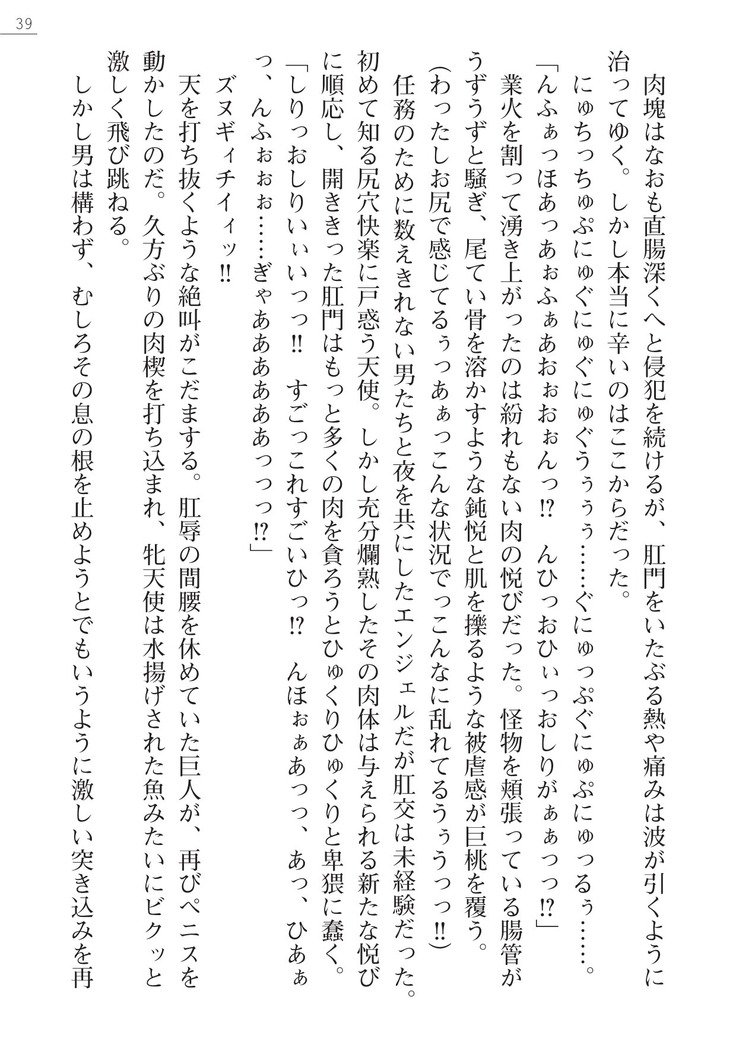 39
肉塊はなおも直腸深くへと侵犯を続けるが、肛門をいたぶる熱や痛みは波が引くように
治ってゆく。しかし本当に辛いのはここからだった。
にゅちっちゅぷにゅぐにゅぐにゅぐうぅぅ……ぐにゅっぷぐにゅぷにゅっるぅ……。
「んふぁっほあっあぉふぁあおぉおぉんっ!? んひっおひぃっおしりがぁぁっっ!?」
業火を割って湧き上がったのは紛れもない肉の悦びだった。怪物を頬張っている腸管が
うずうずと騒ぎ、尾てい骨を溶かすような鈍悦と肌を擽るような被虐感が巨桃を覆う。
(わったしお尻で感じてるぅっあぁっこんな状況でっこんなに乱れてるうぅうっっ!!)
任務のために数えきれない男たちと夜を共にしたエンジェルだが肛交は未経験だった。
初めて知る尻穴快楽に戸惑う天使。しかし充分爛熟したその肉体は与えられる新たな悦び
に順応し、開ききった肛門はもっと多くの肉を貪ろうとひゅくりひゅくりと卑猥に蠢く。
「しりっおしりいぃいっっ!! すごっこれすごいひっ!? んほぉぁあっっ、あっ、ひあぁ
っ、んふぉぉぉ……ぎゃああああああっっっ!?」
ズヌギィチイィッ!!
天を打ち抜くような絶叫がこだまする。肛辱の間腰を休めていた巨人が、再びペニスを
動かしたのだ。久方ぶりの肉楔を打ち込まれ、牝天使は水揚げされた魚みたいにビクッと
激しく飛び跳ねる。
しかし男は構わず、むしろその息の根を止めようとでもいうように激しい突き込みを再